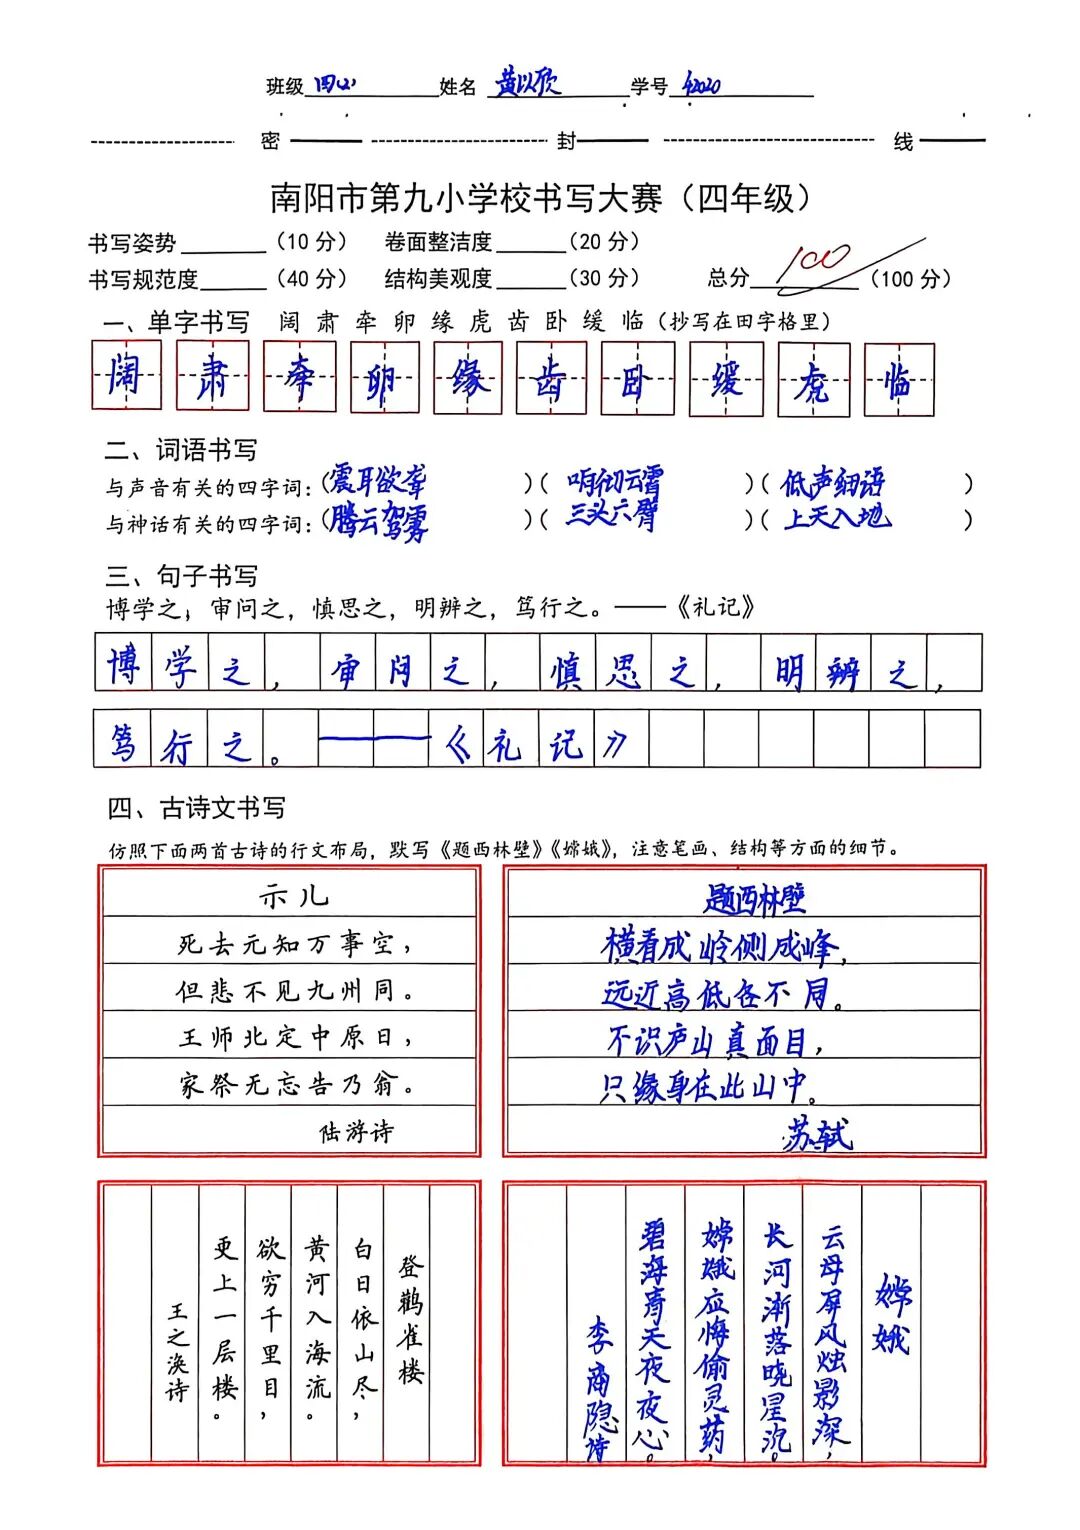 班级 四(2) 姓名 黄以欣 学号 42020
密 封 线
南阳市第九小学校书写大赛（四年级）
书写姿势（10 分） 卷面整洁度（20 分）
书写规范度（40 分） 结构美观度（30 分） 总分 100（100 分）
一、单字书写 阔 肃 牵 卵 缘 虎 齿 卧 缓 临（抄写在田字格里）
阔 肃 牵 卵 缘 齿 卧 缓 虎 临
二、词语书写
与声音有关的四字词：（震耳欲聋）（响彻云霄）（低声细语）
与神话有关的四字词：（腾云驾雾）（三头六臂）（上天入地）
三、句子书写
博学之，审问之，慎思之，明辨之，笃行之。——《礼记》
博学之，审问之，慎思之，明辨之，
笃行之。——《礼记》
四、古诗文书写
仿照下面两首古诗的行文布局，默写《题西林壁》《嫦娥》，注意笔画、结构等方面的细节。
示儿
死去元知万事空，
但悲不见九州同。
王师北定中原日，
家祭无忘告乃翁。
陆游诗
题西林壁
横看成岭侧成峰，
远近高低各不同。
不识庐山真面目，
只缘身在此山中。
苏轼
登鹳雀楼
白日依山尽，
黄河入海流。
欲穷千里目，
更上一层楼。
王之涣诗
嫦娥
云母屏风烛影深，
长河渐落晓星沉。
嫦娥应悔偷灵药，
碧海青天夜夜心。
李商隐诗